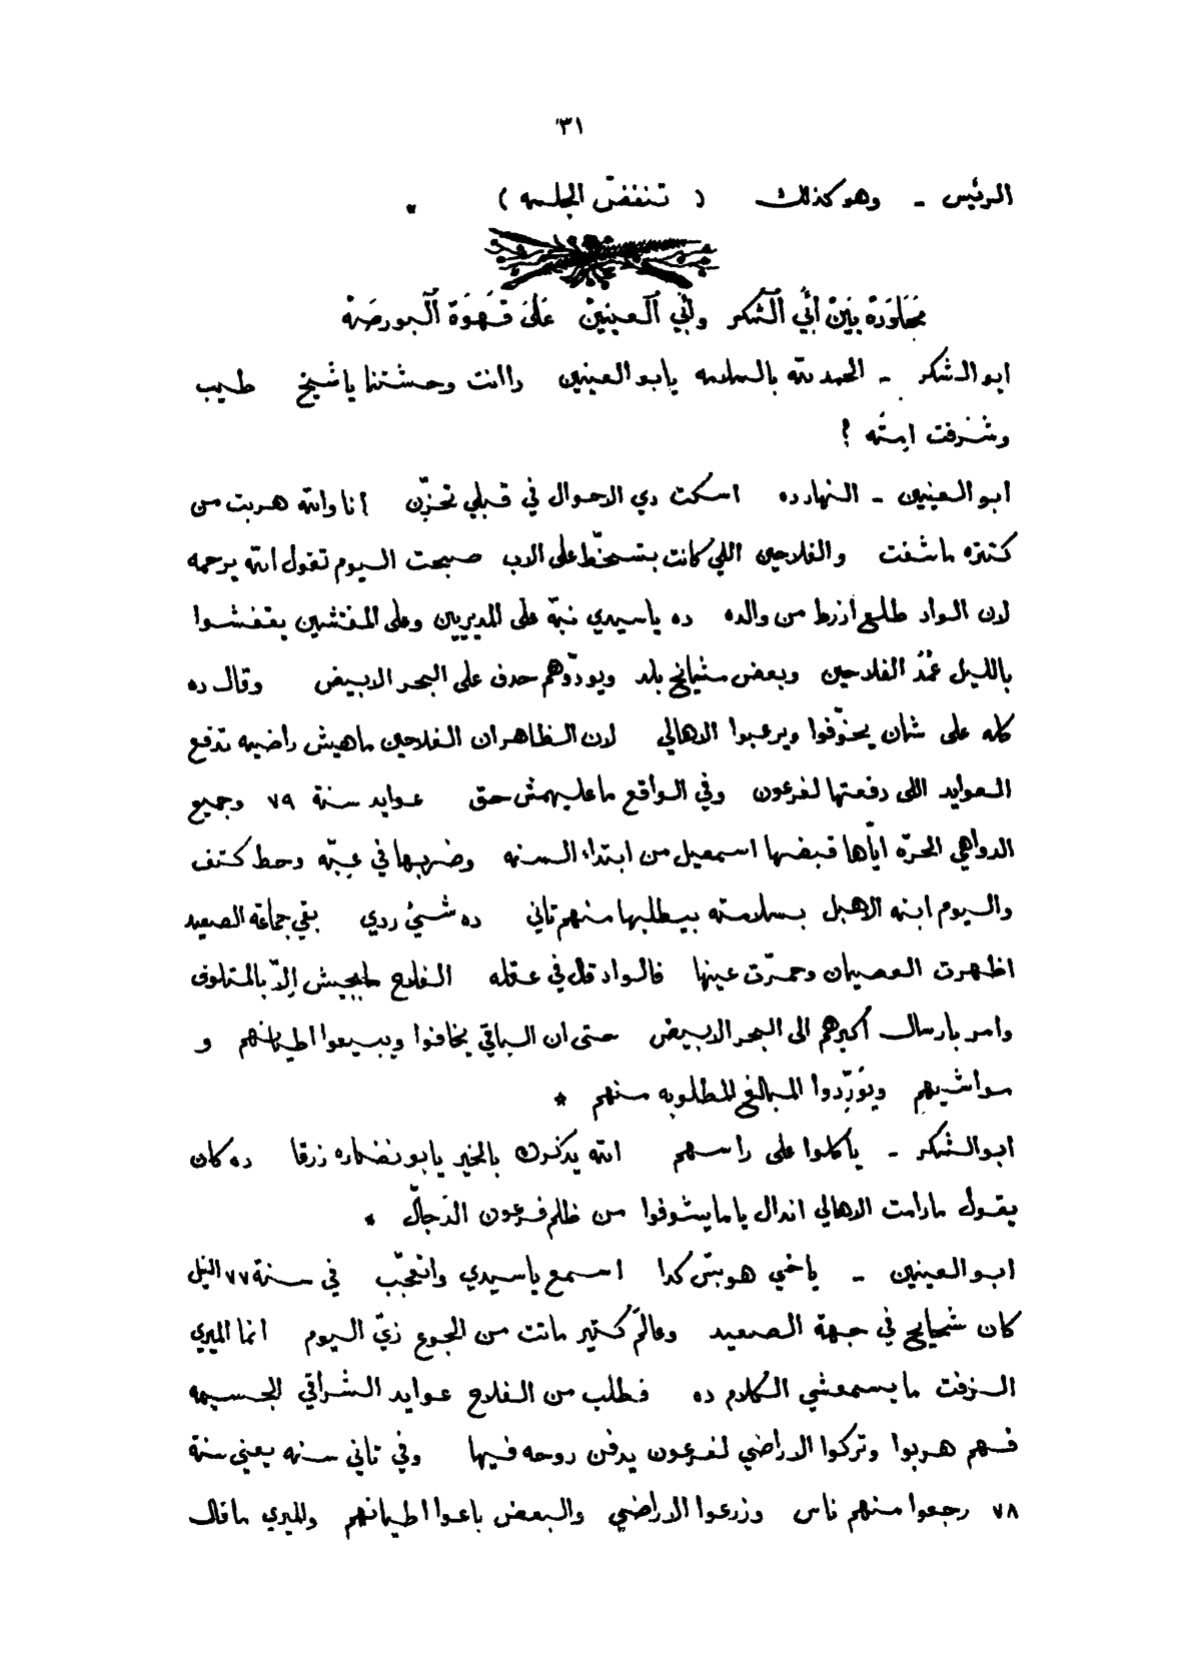 ٣١
الرئيس - وهو كذلك ( تنفضّ الجلسه ) *
مُحَاوَرَةْ بَيَنْ أَبِي ٱلشُكر وأَبِي ٱلعينينْ عَلَىَ قَهْوَةْ ٱلبورصَهْ
ابو الشكر - الحمد لله بالسلامه يابو العينين دا انت وحشتنا يا شيخ طيب
وشرفت امته ؟
ابو العينين - النهارده اسكت دي الاحوال في قبلي تحزّن انا والله هربت من
كتره ما شفت والفلاحين اللي كانت بتسخّط على الاب صبحت اليوم تقول الله يرحمه
لان الواد طلع ازرط من والده ده يا سيدي نبّه على المديرين وعلى المفتشين يقفشوا
بالليل عُمُد الفلاحين وبعض مشايخ بلد ويودّوهم حدف على البحر الابيض وقال ده
كله على شان يخوّفوا ويرعبوا الاهالي لان الظاهر ان الفلاحين ماهيش راضيه تدفع
العوايد اللى دفعتها لفرعون وفي الواقع ما عليهمش حق عوايد سنة ٧٩ وجميع
الدواهي الحرّه ايّاها قبضها اسمعيل من ابتداء السنه وضربها في عبّه وحط كتف
واليوم ابنه الاهبل بسلامته بيطلبها منهم تاني ده شيئ ردي بقي جماعة الصعيد
اظهرت العصيان وحمرّت عينها فالواد قال في عقله الفلاح مايجيش إلاّ بالمتلوف
وامر بارسال أكبرهم الى البحر الابيض حتى ان الباقي يخافوا ويبيعوا اطيانهم و
مواشيهم ويوَرّدوا المبالغ المطلوبه منهم *
ابو الشكر - ياكلوا على راسهم الله يذكرك بالخير يابو نضاره زرقا ده كان
يقول مادامت الاهالي اندال ياما يشوفوا من ظلم فرعون الدَجالّ *
ابو العينين - ياخي هو بسّ كدا اسمع يا سيدي واتعجّب في سنة ٧٧ النيل
كان شحايح في جهة الصعيد وعالَم كتير ماتت من الجوع زيّ اليوم انما الميري
الزفت ما يسمعشي الكلام ده فطلب من الفلاح عوايد الشراقي الجسيمه
فهم هربوا وتركوا الاراضي لفرعون يدفن روحه فيها وفي تاني سنه يعني سنة
٧٨ رجعوا منهم ناس وزرعوا الاراضي والبعض باعوا اطيانهم والميري ما قال